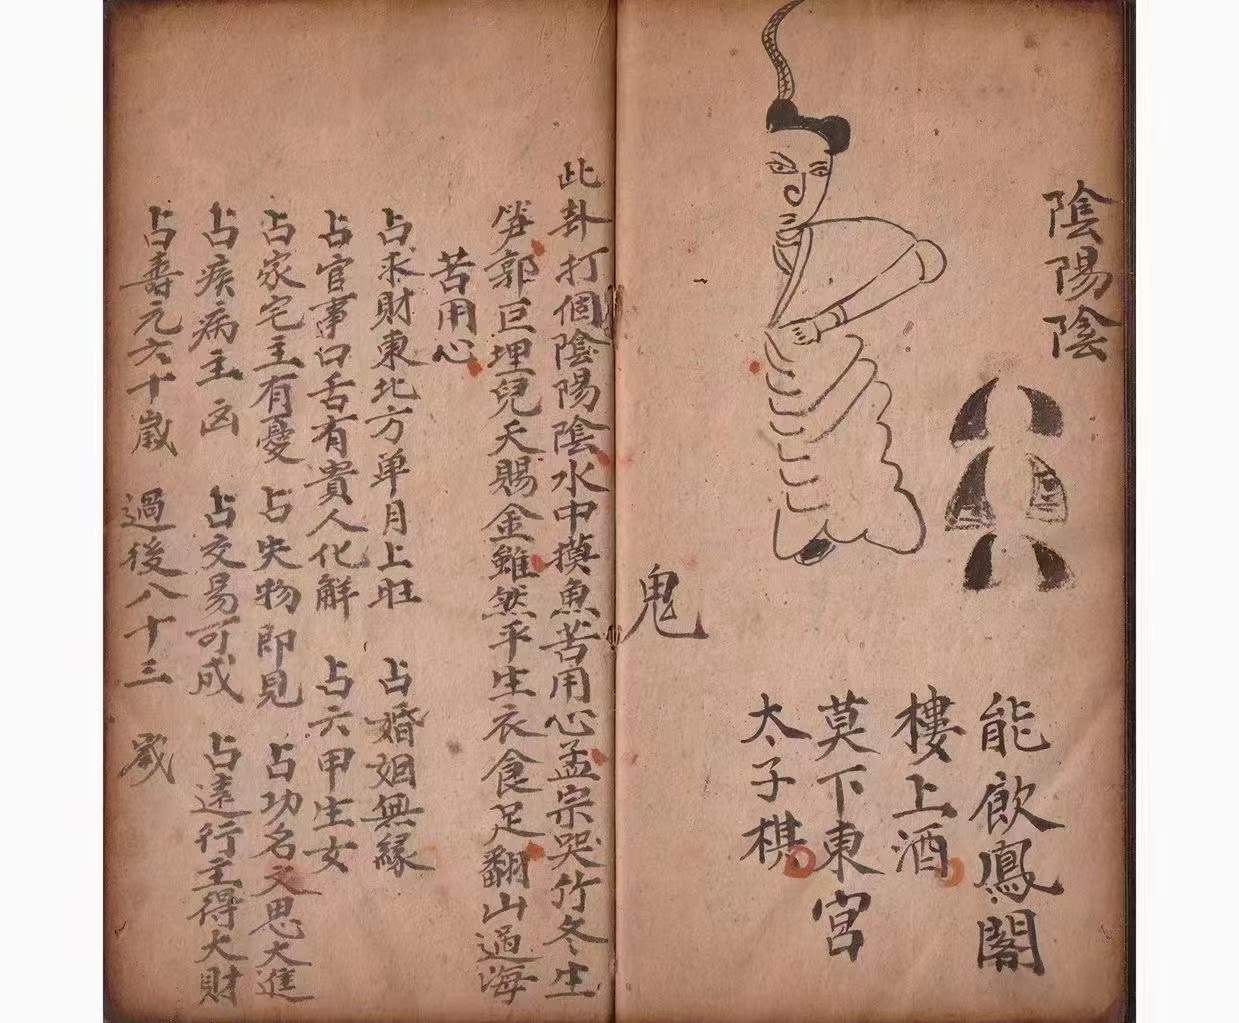 陰陽陰
能飲鳳閣
樓上酒
莫下東宮
太子棋
鬼
此卦打個陰陽陰水中摸魚苦用心孟宗哭竹冬生
笋郭巨埋兒天賜金雖然平生衣食足翻山過海
苦用心
占求財東北方单月上旺 占婚姻無緣
占官事口舌有貴人化解 占六甲生女
占家宅主有憂 占失物即見 占功名文思大進
占疾病主凶 占交易可成 占遠行主得大財
占壽元六十歲 過後八十三歲